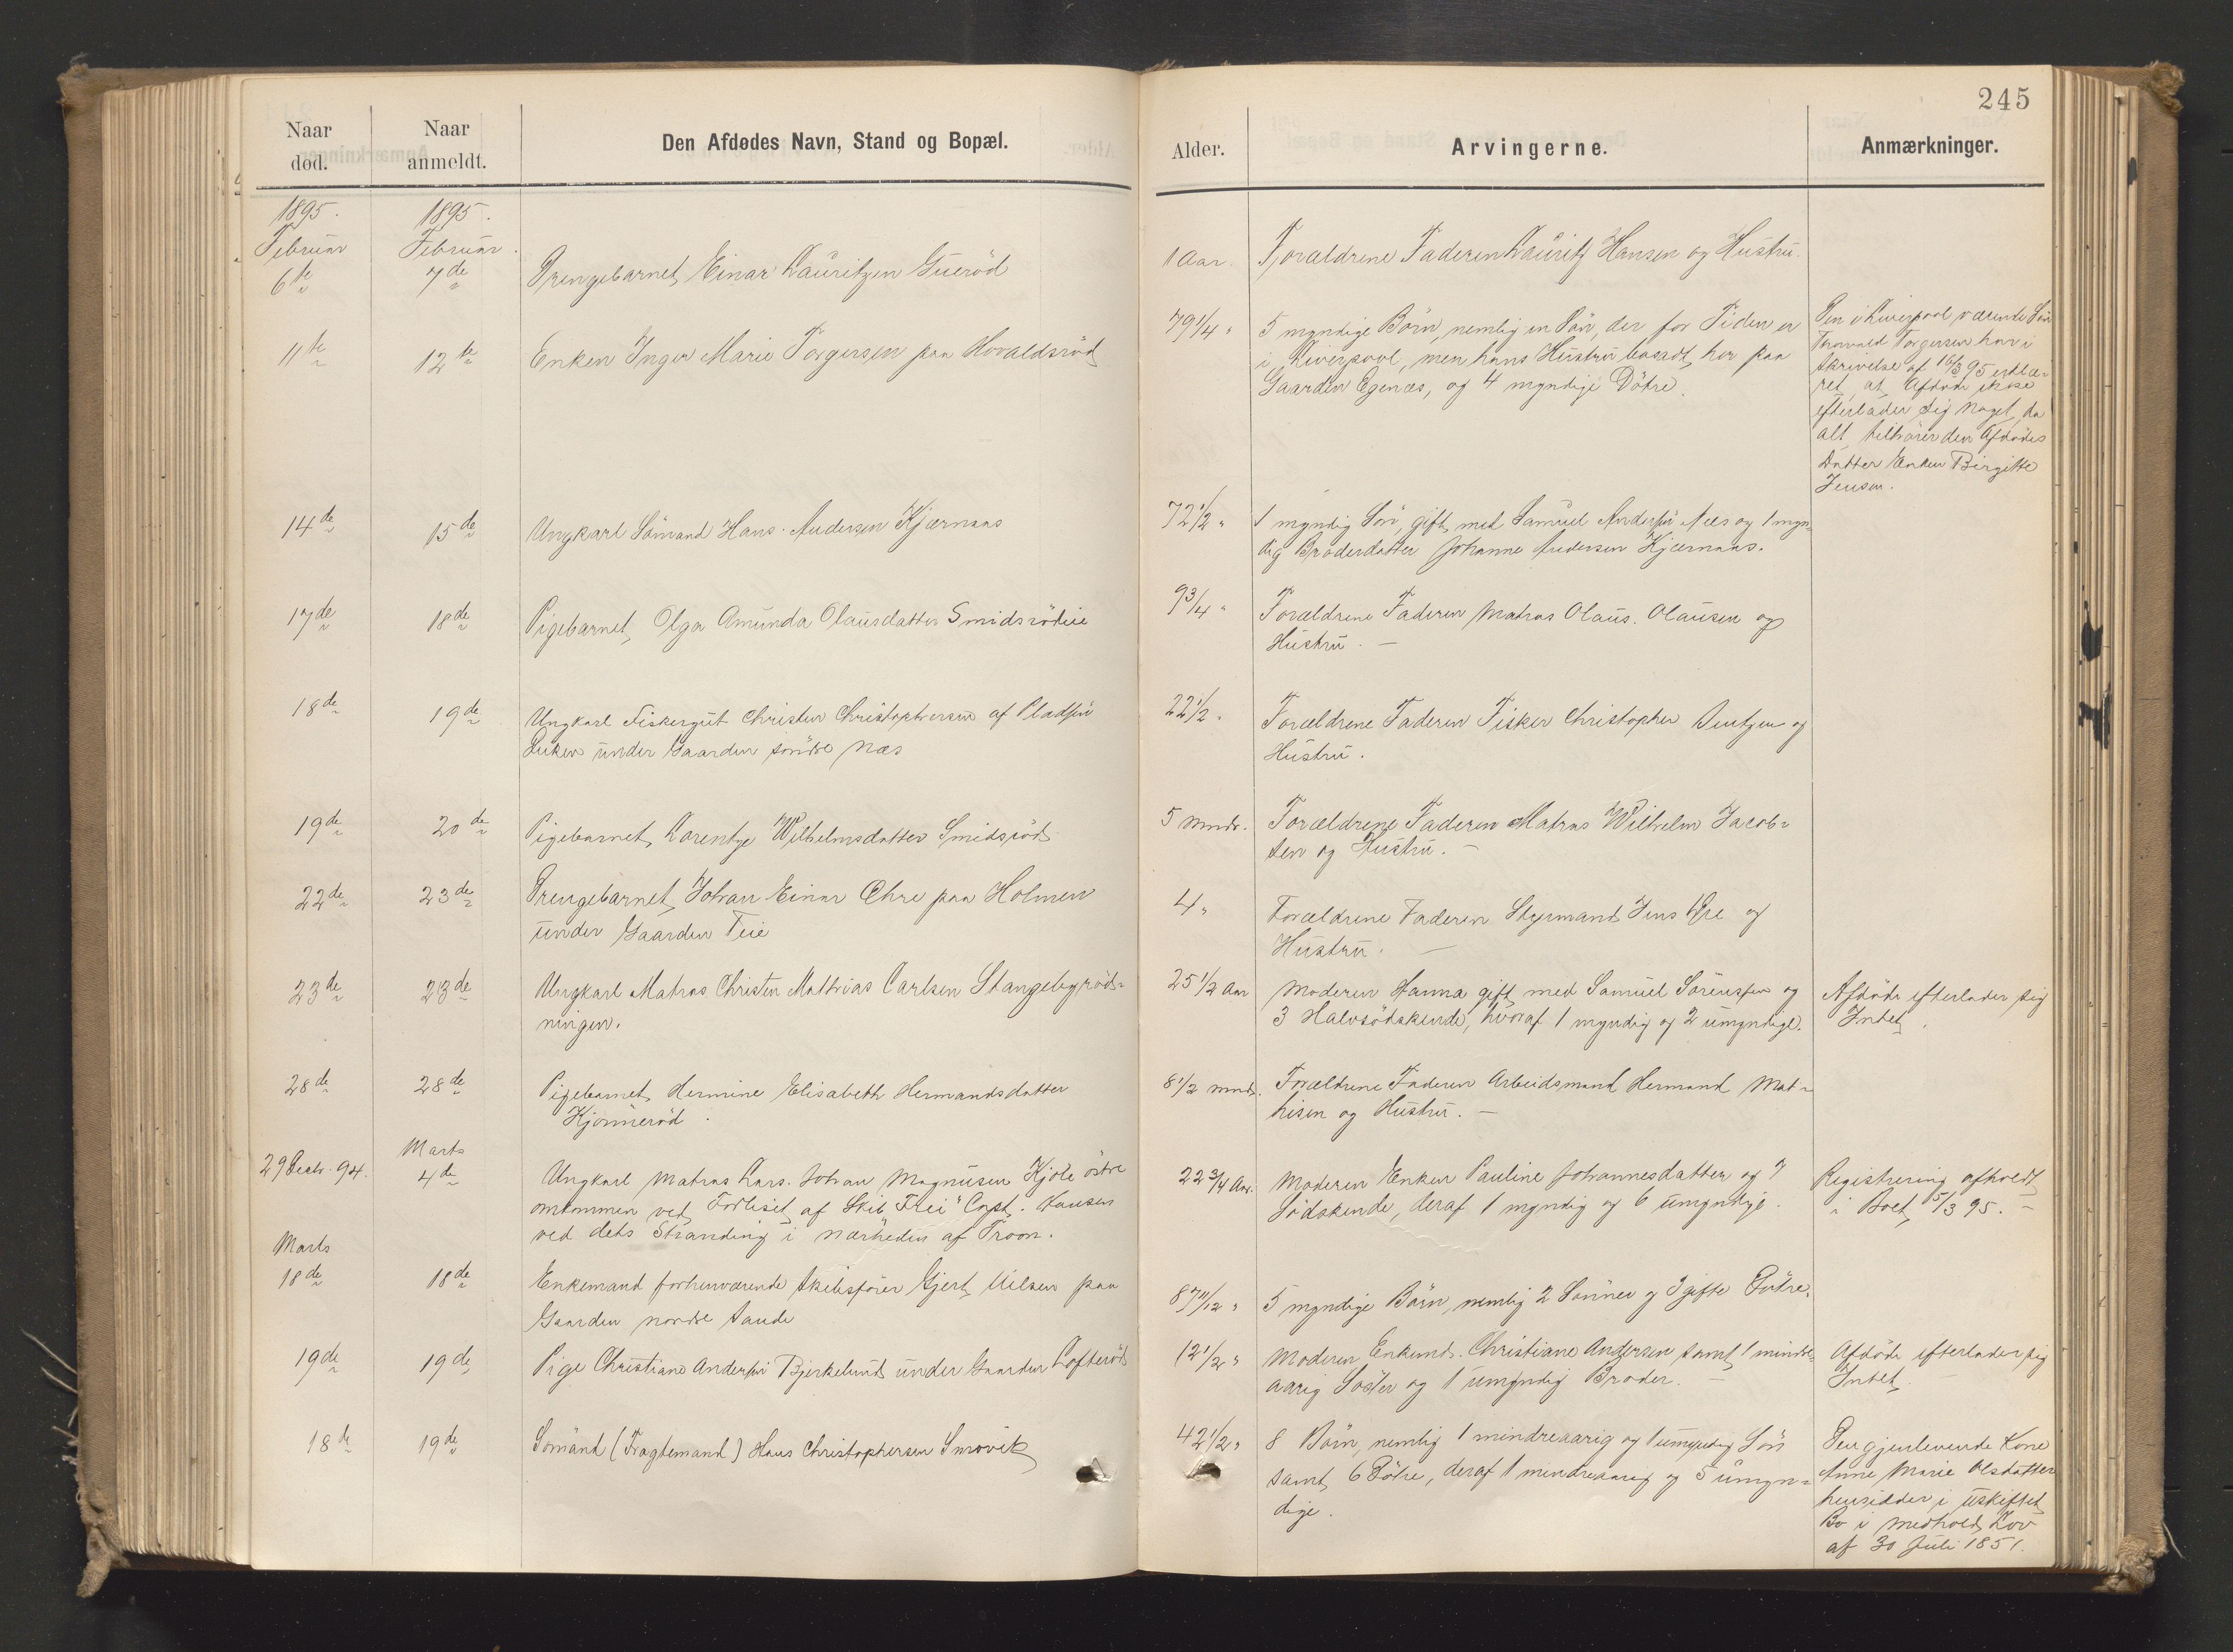 245
Naar død.
Naar anmeldt.
Den Afdødes Navn, Stand og Bopæl.
Alder.
Arvingerne.
Anmærkninger.
1895.
Februar
6te
1895.
Februar
7de
Drengebarnet Einar Lauritzen Guerød
1 Aar
Forældrene Faderen Lauritz Hansen og Hustru.
11te
12te
Enken Inger Marie Torgersen paa Hovaldsrød
79 1/4 "
5 myndige Børn, nemlig en Søn, der for Tiden er
i Liverpool, men hans Hustru bosadt her paa
Gaarden Egenæs, og 4 myndige Døtre.
Den i Liverpool værende Søn
Thorvald Torgersen har i
Skrivelse af 16/3 95 erklæ-
ret, at Afdøde ikke
efterlader sig noget, da
alt tilhører den Afdødes
Datter Enken Birgitte
Jensen.
14de
15de
Ungkarl Sömand Hans Andersen Kjærnaas
72 1/2 "
1 myndig Sön, gift med Samuel Andersen Næs og 1 myn-
dig Broderdatter Johanne Andersen Kjærnaas.
17de
18de
Pigebarnet Olga Amunda Olausdatter Smidsrødeie
9 3/4 "
Forældrene Faderen Matros Olaus Olausen og
Hustru. —
18de
19de
Ungkarl Fiskergut Christen Christophersen af Pladsen
under Gaarden søndre Næs
22 1/2 "
Forældrene Faderen Fisker Christopher og
Hustru.
19de
20de
Pigebarnet Lorentze Wilhelmsdatter Smidsrød
5 Mndr.
Forældrene Faderen Matros Wilhelm Jacob-
sen og Hustru. —
22de
23de
Drengebarnet Johan Einar Øhre paa Holmen
under Gaarden Teie
4 "
Forældrene Faderen Styrmand Jens Øre og
Hustru. —
23de
23de
Ungkarl Matros Christen Mathias Carlsen Stangebyrød-
ningen.
25 1/2 Aar
Moderen Hanna gift med Samuel Sörenssen og
3 Halvsødskende, hvoraf 1 myndig og 2 umyndige.
Afdøde efterlader sig
Intet.
28de
28de
Pigebarnet Hermine Elisabeth Hermandsdatter
Kjønnerød.
8 1/2 Mndr.
Forældrene Faderen Arbeidsmand Hermand Mat-
hisen og Hustru. —
29 Decbr. 94.
Marts
4de
Ungkarl Matros Lars Johan Magnusen Kjøle østre
omkommen ved Forliset af Skib "Frei" Capt. Hansen
ved dets Stranding i nærheden af Troon.
22 3/4 Aar.
Moderen Enken Pauline Johannesdatter og 7
Södskende, deraf 1 myndig og 6 umyndige.
Registrering afholdt
i Boet 5/3 95. —
Marts
18de
18de
Enkemand forhenværende Skibsfører Gjert Nilsen paa
Gaarden nordre Sande
87 11/12 "
5 myndige Børn, nemlig 2 Sønner og 3 gifte Døtre.
19de
19de
Pige Christiane Andersen Bjerkelund under Gaarden Lofterød
12 1/2 "
Moderen Enkemd. Christiane Andersen samt 1 mindre-
aarig Søster og 1 umyndig Broder. —
Afdøde efterlader sig
Intet.
18de
19de
Sömand (Fragtemand) Hans Christophersen Smovik
42 1/2 "
8 Børn, nemlig 1 mindreaarig og 1 umyndig Søn
samt 6 Døtre, deraf 1 mindreaarig og 5 umyn-
dige.
Den gjenlevende Kone
Anne Marie Olsdatter
hensidder i uskiftet
Bo i Medhold Lov
af 30 Juli 1851.